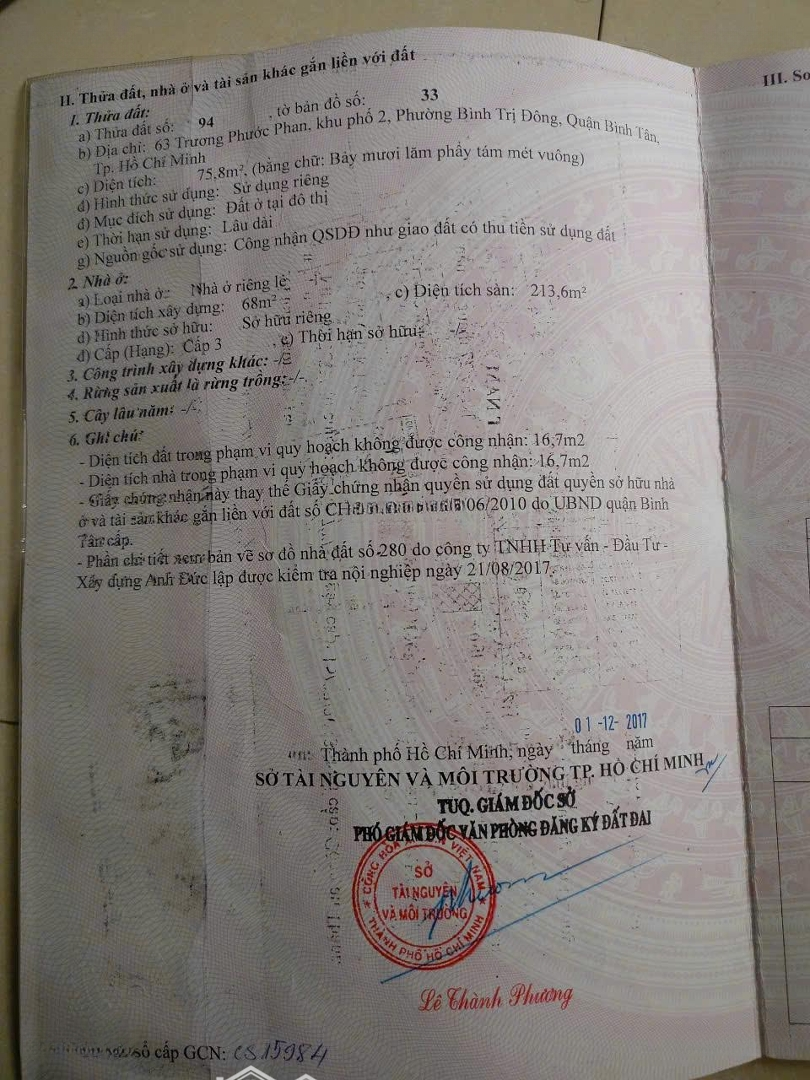 II. Thửa đất, nhà ở và tài sản khác gắn liền với đất
III. Sơ
1. Thửa đất:
a) Thửa đất số: 94 , tờ bản đồ số: 33
b) Địa chỉ: 63 Trương Phước Phan, khu phố 2, Phường Bình Trị Đông, Quận Bình Tân,
Tp. Hồ Chí Minh
c) Diện tích: 75,8m², (bằng chữ: Bảy mươi lăm phẩy tám mét vuông)
d) Hình thức sử dụng: Sử dụng riêng
đ) Mục đích sử dụng: Đất ở tại đô thị
e) Thời hạn sử dụng: Lâu dài
g) Nguồn gốc sử dụng: Công nhận QSDĐ như giao đất có thu tiền sử dụng đất
2. Nhà ở:
a) Loại nhà ở: Nhà ở riêng lẻ
b) Diện tích xây dựng: 68m² , c) Diện tích sàn: 213,6m²
d) Hình thức sở hữu: Sở hữu riêng
đ) Cấp (Hạng): Cấp 3 , e) Thời hạn sở hữu: -/-
3. Công trình xây dựng khác: -/-
4. Rừng sản xuất là rừng trồng: -/-
5. Cây lâu năm: -/-
6. Ghi chú:
- Diện tích đất trong phạm vi quy hoạch không được công nhận: 16,7m2
- Diện tích nhà trong phạm vi quy hoạch không được công nhận: 16,7m2
- Giấy chứng nhận này thay thế Giấy chứng nhận quyền sử dụng đất quyền sở hữu nhà
ở và tài sản khác gắn liền với đất số 06/2010 do UBND quận Bình
Tân cấp.
- Phần chi tiết xem bản vẽ sơ đồ nhà đất số 280 do công ty TNHH Tư vấn - Đầu Tư -
Xây dựng Anh Đức lập được kiểm tra nội nghiệp ngày 21/08/2017.
01 -12- 2017
Thành phố Hồ Chí Minh, ngày tháng năm
SỞ TÀI NGUYÊN VÀ MÔI TRƯỜNG TP. HỒ CHÍ MINH
TUQ. GIÁM ĐỐC SỞ
PHÓ GIÁM ĐỐC VĂN PHÒNG ĐĂNG KÝ ĐẤT ĐAI
SỞ
TÀI NGUYÊN
VÀ MÔI TRƯỜNG
THÀNH PHỐ HỒ CHÍ MINH
Lê Thành Phương
số cấp GCN: CS15984